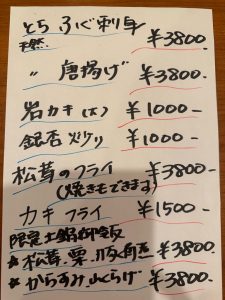 とらふぐ刺身 ¥3800-
天然
〃 唐揚げ ¥3800-
岩カキ(大) ¥1000-
銀杏炒り ¥1000-
松茸のフライ ¥3800-
(焼きもできます)
カキフライ ¥1500-
限定土鍋御飯
★松茸.栗. ¥3800-
★からすみ ¥3800-